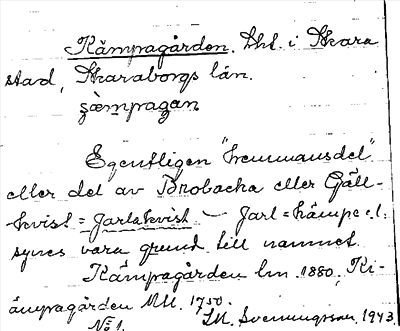 Kämpagården. Lht. i Skara
stad, Skaraborgs län.
şàmpagan
Egentligen "Fremmansdel"
eller del av Brobacka eller Gäll-
kvist = Jarlakvist — Jarl = kämpe e.l.
synes vara grund till namnet.
Kämpagården hn. 1880, Ki-
ämpagården M.U. 1750.
No 1. I.M. Svenungsson, 1943.